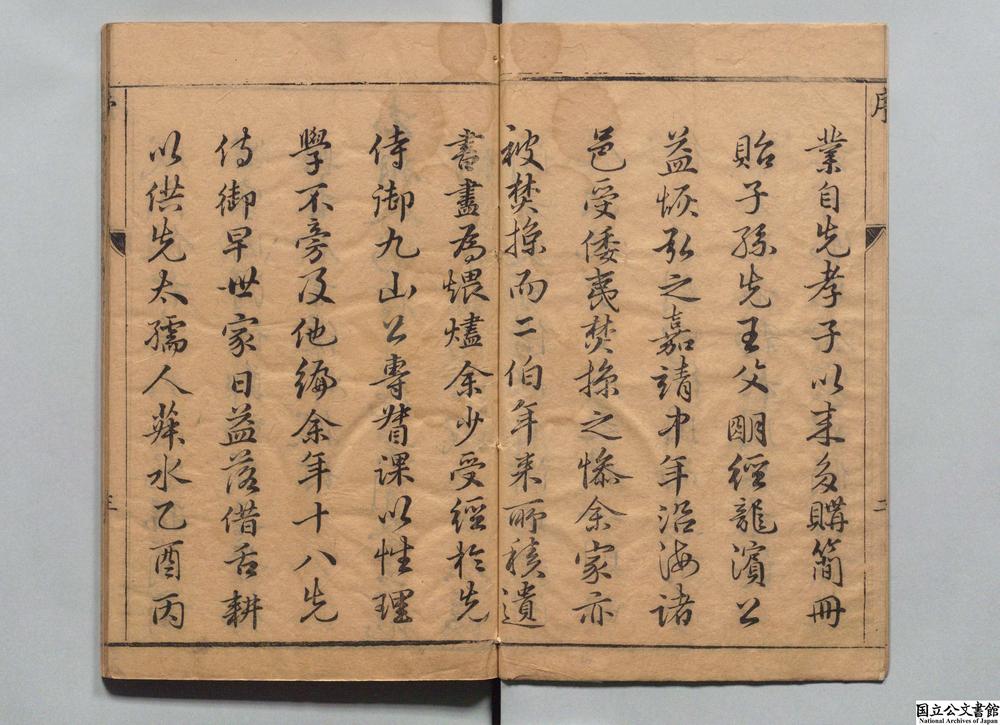 序
二
業自先孝子以来多購簡冊
貽子孫先王父明經龍濵公
益恢弘之嘉靖中年沿海諸
邑受倭夷焚掠之惨余家亦
被焚掠而二伯年来所積遺
書盡為煨燼余少受經於先
侍御九山公專督課以性理
學不旁及他編余年十八先
侍御早世家日益落借舌耕
以供先太孺人菽水乙酉丙
三
国立公文書館
National Archives of Japan